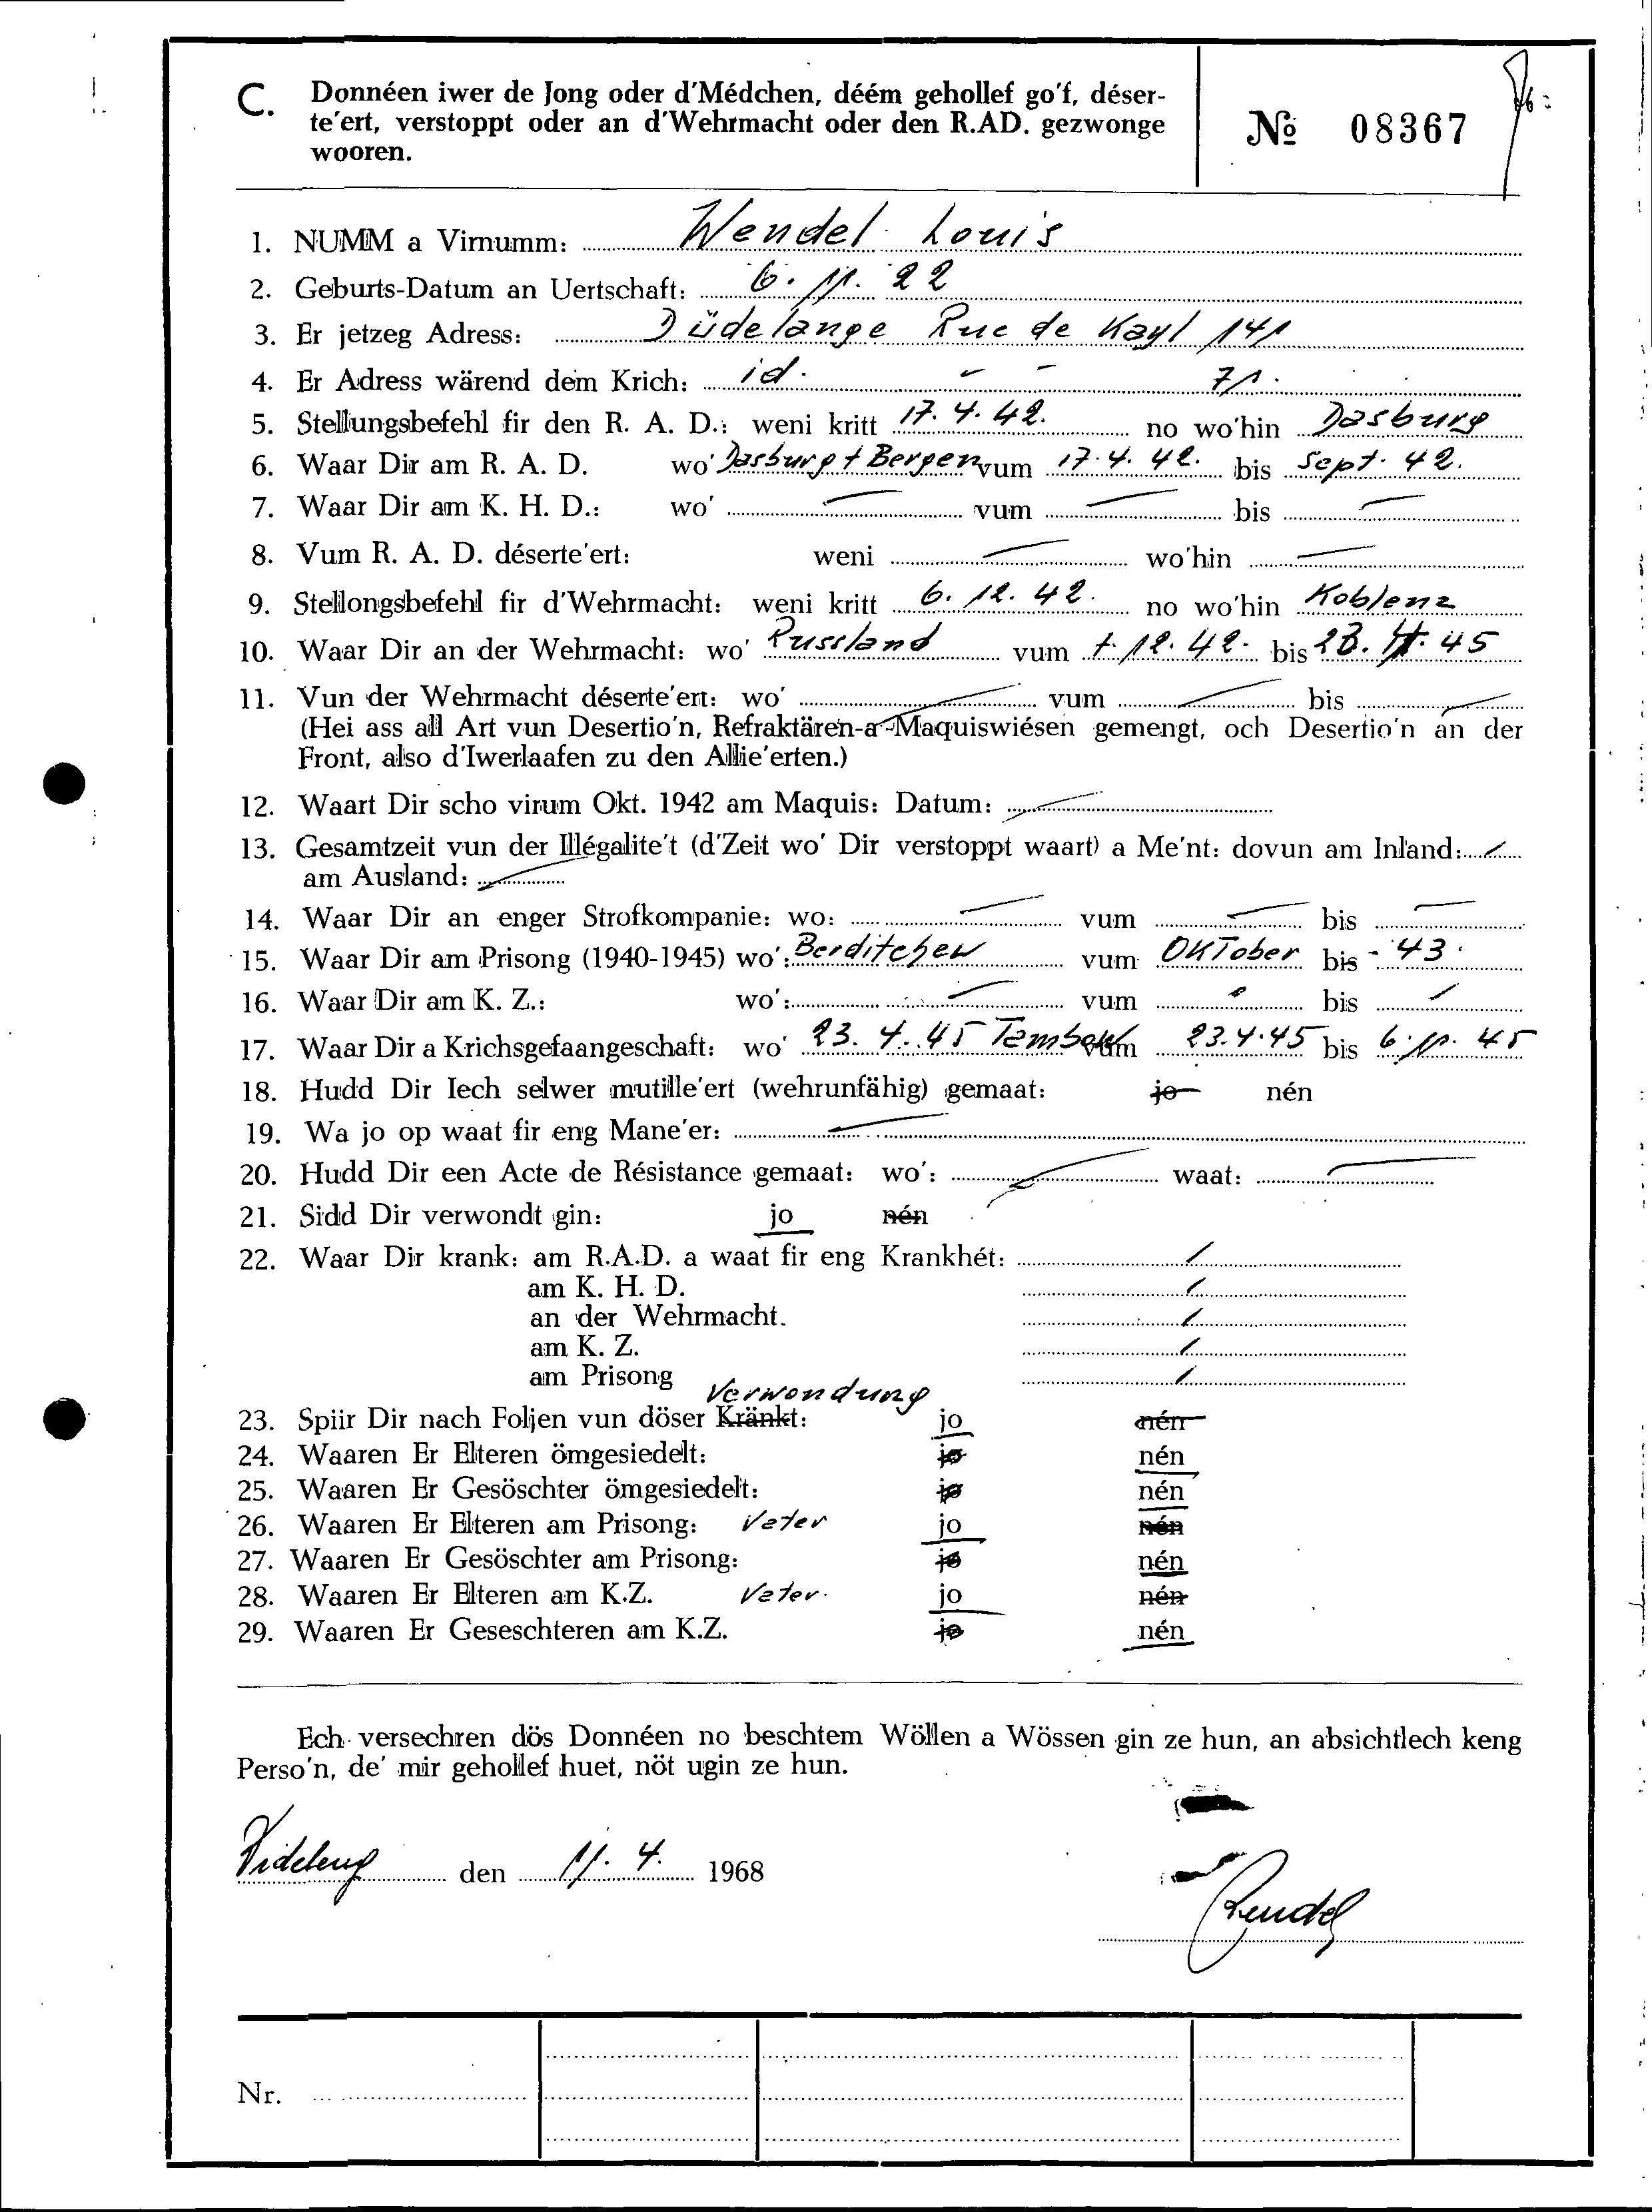 C. Donnéen iwer de Jong oder d'Médchen, déém gehollef go'f, déser-
te'ert, verstoppt oder an d'Wehrmacht oder den R.AD. gezwonge
wooren.
№ 08367
1. NUMM a Virnumm: Wendel Louis
2. Geburts-Datum an Uertschaft: 6. 11. 22
3. Er jetzeg Adress: Düdelange Rue de Kayl 141
4. Er Adress wärend dem Krich: id. - - 71.
5. Stellungsbefehl fir den R. A. D.: weni kritt 17. 4. 42. no wo'hin Dasburg
6. Waar Dir am R. A. D. wo' Dasburg + Bergen vum 17. 4. 42. bis Sept. 42.
7. Waar Dir am K. H. D.: wo' — vum — bis —
8. Vum R. A. D. déserte'ert: weni — wo'hin —
9. Stellongsbefehl fir d'Wehrmacht: weni kritt 6. 12. 42. no wo'hin Koblenz
10. Waar Dir an der Wehrmacht: wo' Russland vum 12. 42. bis 45
11. Vun der Wehrmacht déserte'ert: wo' — vum — bis —
(Hei ass all Art vun Desertio'n, Refraktären-a-Maquiswiésen gemengt, och Desertio'n an der
Front, also d'Iwerlaafen zu den Allie'erten.)
12. Waart Dir scho virum Okt. 1942 am Maquis: Datum: —
13. Gesamtzeit vun der Illégalite't (d'Zeit wo' Dir verstoppt waart) a Me'nt: dovun am Inland: —
am Ausland: —
14. Waar Dir an enger Strofkompanie: wo: — vum — bis —
15. Waar Dir am Prisong (1940-1945) wo': Berditchew vum OKTober bis - 43.
16. Waar Dir am K. Z.: wo': — vum — bis —
17. Waar Dir a Krichsgefaangeschaft: wo' 23. 4. 45 Tambow vum 23.4.45 bis 6. 11. 45
18. Hudd Dir Iech selwer mutille'ert (wehrunfähig) gemaat: jo nén
19. Wa jo op waat fir eng Mane'er: —
20. Hudd Dir een Acte de Résistance gemaat: wo': — waat: —
21. Sidd Dir verwondt gin: jo nén
22. Waar Dir krank: am R.A.D. a waat fir eng Krankhét: /
am K. H. D. /
an der Wehrmacht. /
am K. Z. /
am Prisong /
Verwondung
23. Spiir Dir nach Foljen vun döser Kränkt: jo nén
24. Waaren Er Elteren ömgesiedelt: jo nén
25. Waaren Er Gesöschter ömgesiedelt: jo nén
26. Waaren Er Elteren am Prisong: Vater jo nén
27. Waaren Er Gesöschter am Prisong: jo nén
28. Waaren Er Elteren am K.Z. Vater. jo nén
29. Waaren Er Geseschteren am K.Z. jo nén
Ech versechren dös Donnéen no beschtem Wöllen a Wössen gin ze hun, an absichtlech keng
Perso'n, de' mir gehollef huet, nöt ugin ze hun.
den 11. 4. 1968
Wendel
Nr.